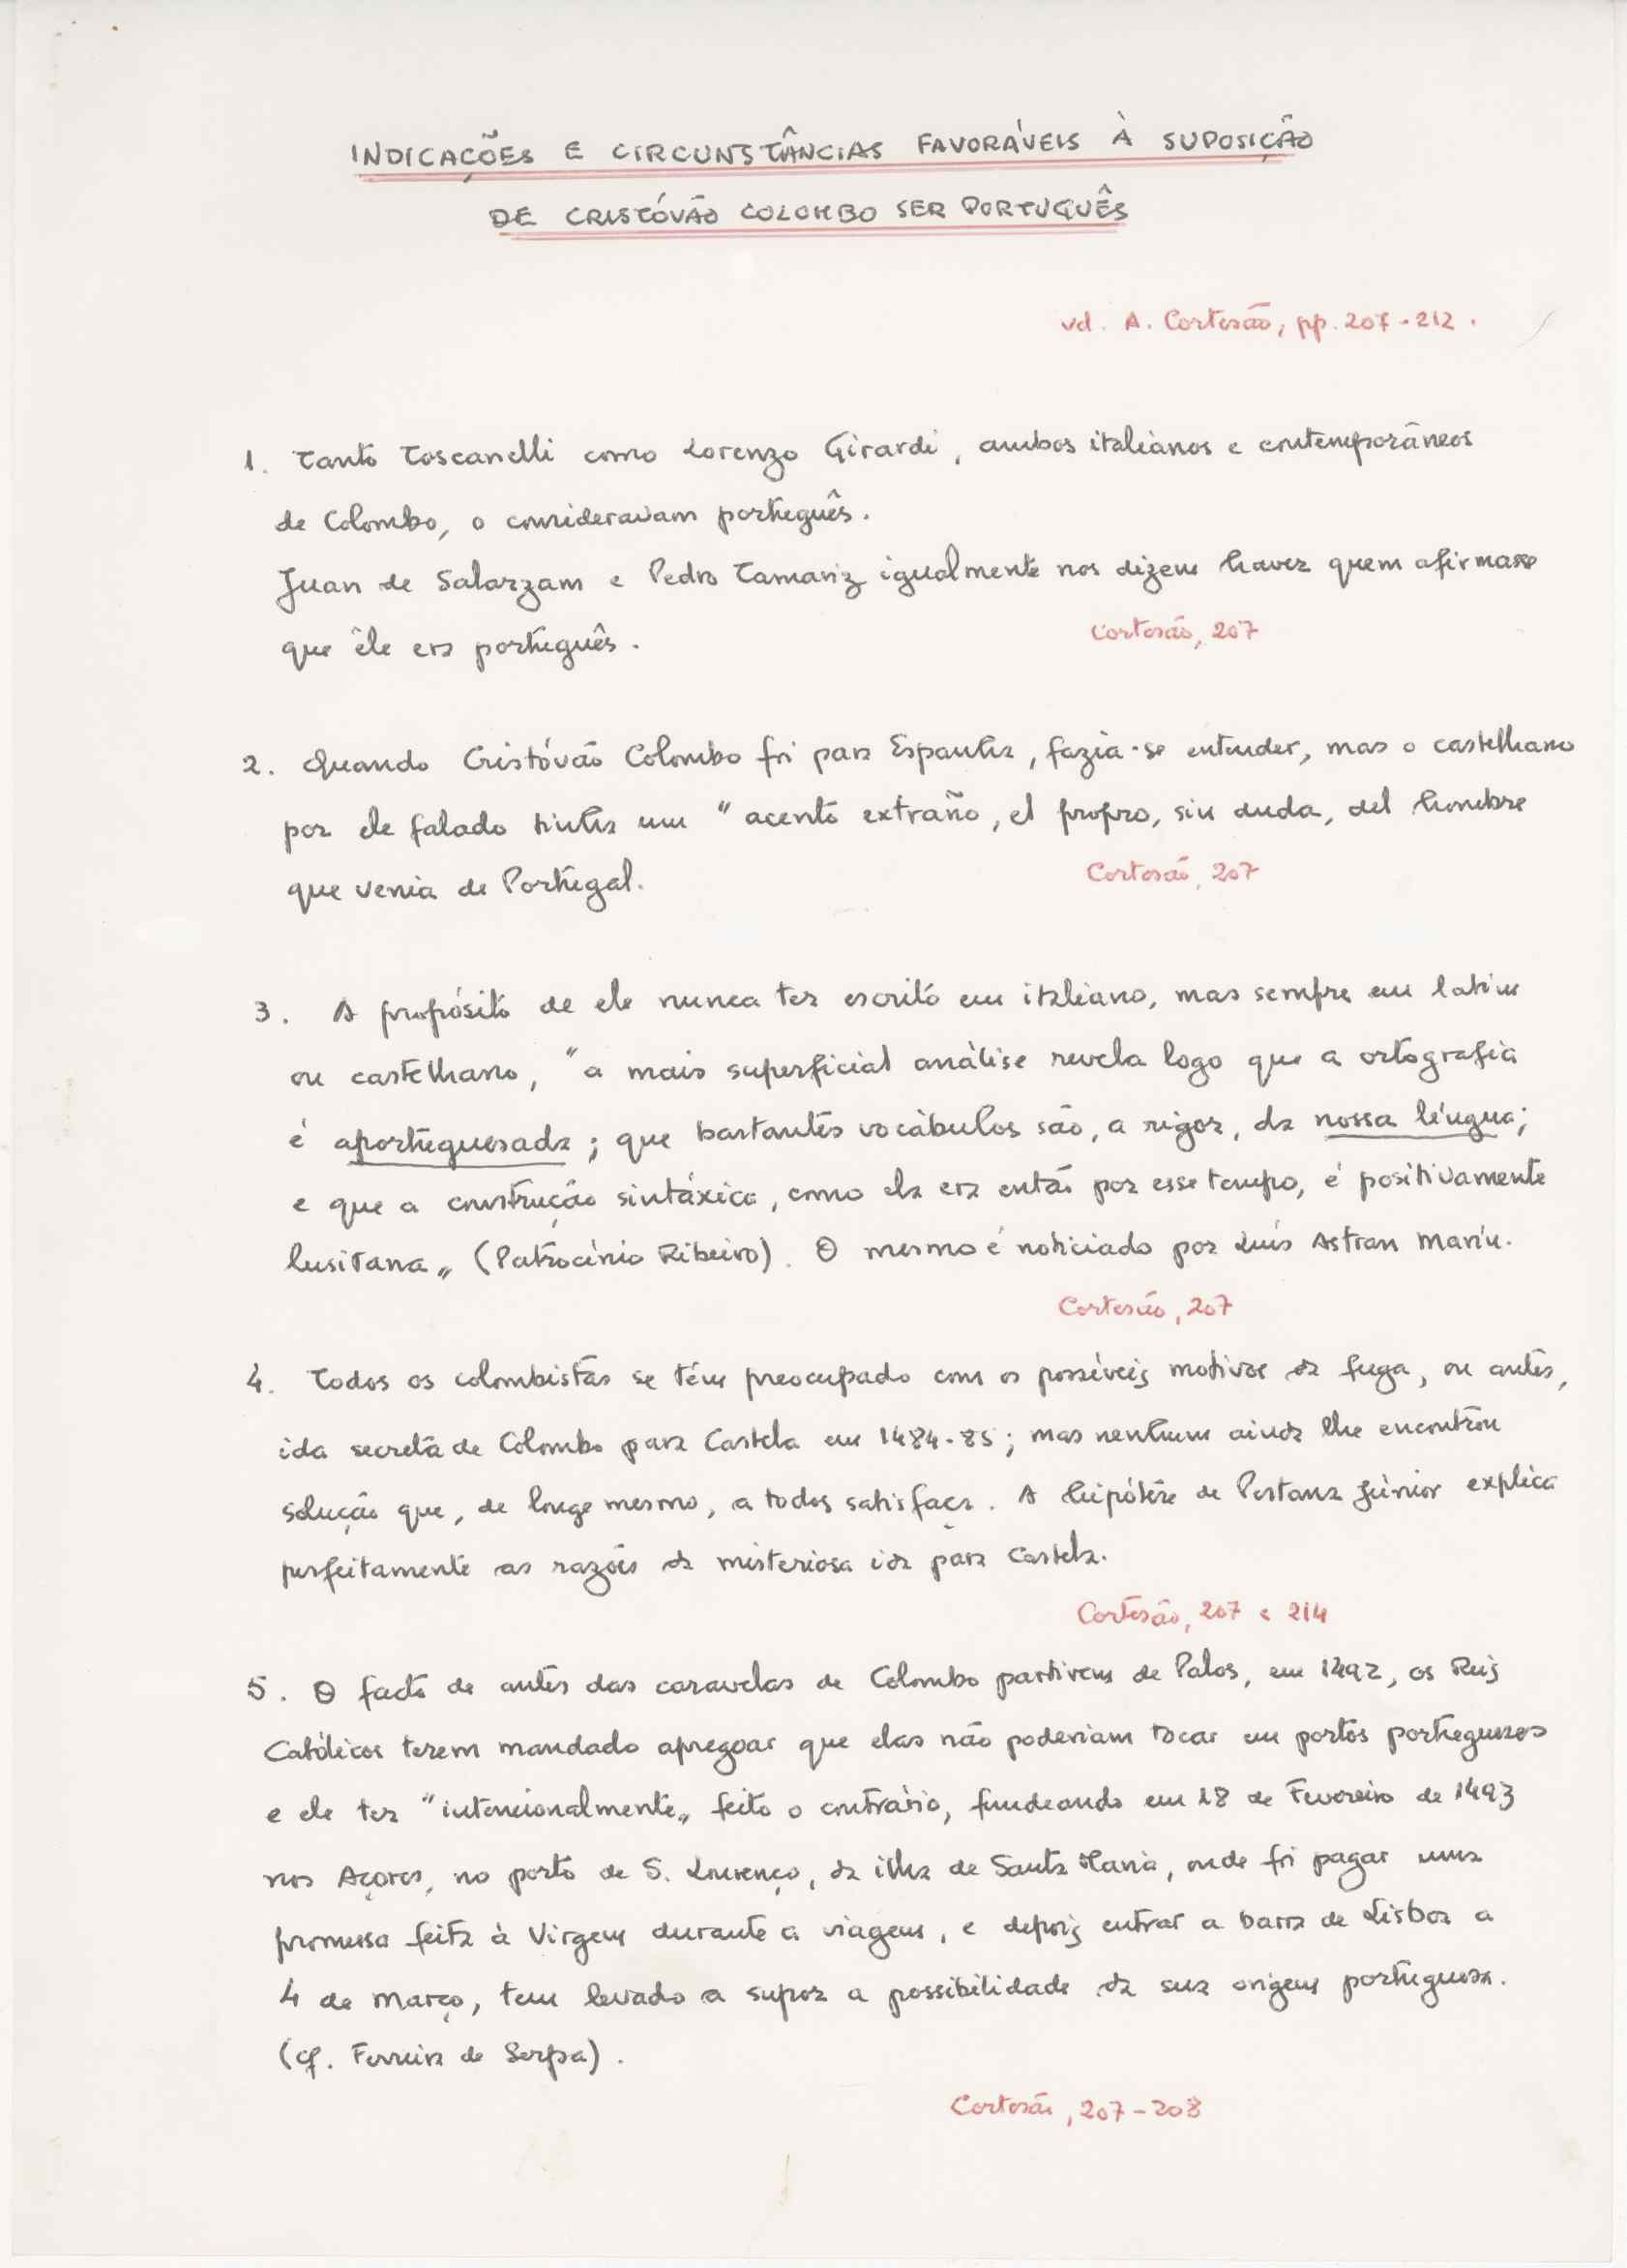 INDICAÇÕES E CIRCUNSTÂNCIAS FAVORÁVEIS À SUPOSIÇÃO
DE CRISTÓVÃO COLOMBO SER PORTUGUÊS
vd. A. Cortesão, pp. 207-212.
1. Tanto Toscanelli como Lorenzo Girardi, ambos italianos e contemporâneos
de Colombo, o consideravam português.
Juan de Salarzam e Pedro Tamariz igualmente nos dizem haver quem afirmasse
que êle era português.
Cortesão, 207
2. Quando Cristóvão Colombo foi para Espanha, fazia-se entender, mas o castelhano
por ele falado tinha um "acento extraño, el propro, sin duda, del hombre
que venia de Portugal.
Cortesão, 207
3. A propósito de ele nunca ter escrito em italiano, mas sempre em latim
ou castelhano, "a mais superficial análise revela logo que a ortografia
é aportuguesada; que bastantes vocábulos são, a rigor, da nossa língua;
e que a construção sintáxica, como ela era então por esse tempo, é positivamente
lusitana" (Patrocínio Ribeiro). O mesmo é noticiado por Luís Astran Marín.
Cortesão, 207
4. Todos os colombistas se têm preocupado com os possíveis motivos da fuga, ou antes,
ida secreta de Colombo para Castela em 1484-85; mas nenhum ainda lhe encontrou
solução que, de longe mesmo, a todos satisfaça. A hipótese de Pestana Júnior explica
perfeitamente as razões da misteriosa ida para Castela.
Cortesão, 207 e 214
5. O facto de antes das caravelas de Colombo partirem de Palos, em 1492, os Reis
Católicos terem mandado apregoar que elas não poderiam tocar em portos portugueses
e ele ter "intencionalmente" feito o contrário, fundeando em 18 de Fevereiro de 1493
nos Açores, no porto de S. Lourenço, da ilha de Santa Maria, onde foi pagar uma
promessa feita à Virgem durante a viagem, e depois entrar a barra de Lisboa a
4 de Março, tem levado a supor a possibilidade da sua origem portuguesa.
(cf. Ferreira de Serpa).
Cortesão, 207-208